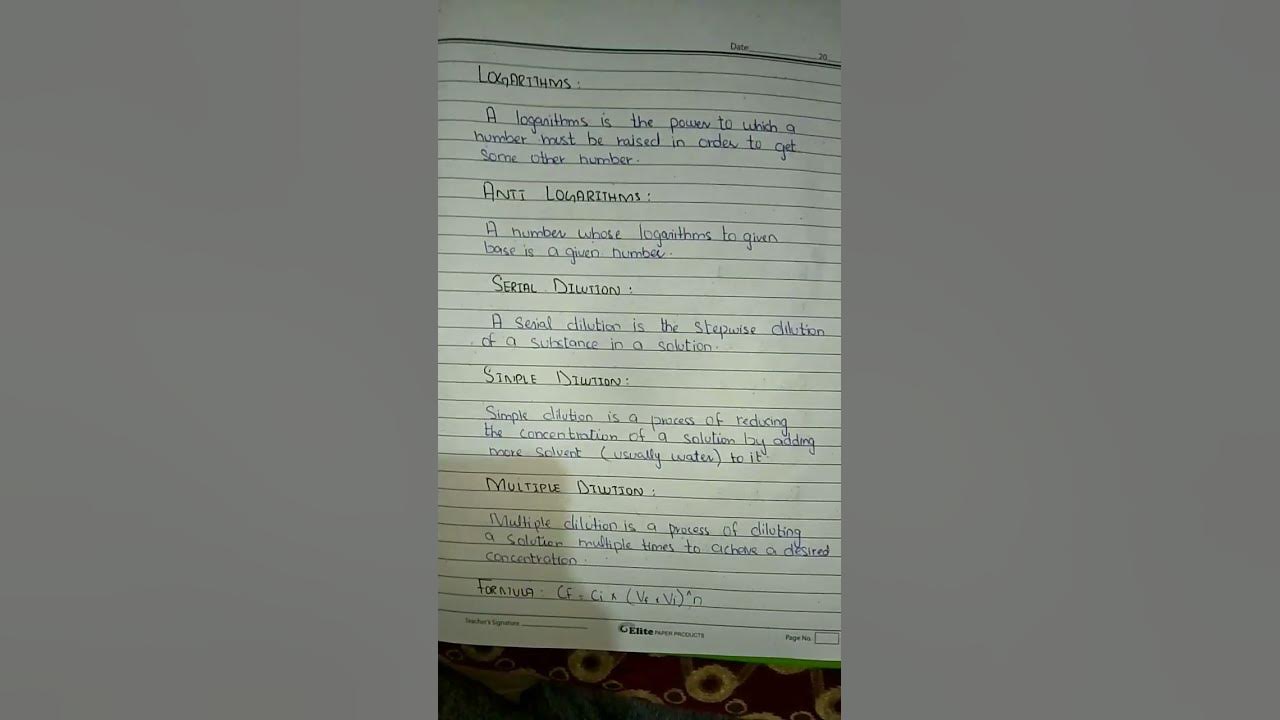 Date 20
LOGARITHMS:
A logarithms is the power to which a
number must be raised in order to get
some other number.
ANTI LOGARITHMS:
A number whose logarithms to given
base is a given number.
SERIAL DILUTION:
A serial dilution is the stepwise dilution
of a substance in a solution.
SIMPLE DILUTION:
Simple dilution is a process of reducing
the concentration of a solution by adding
more solvent (usually water) to it
MULTIPLE DILUTION:
Multiple dilution is a process of diluting
a solution multiple times to achave a desired
concentration.
FORMULA: Cf = Ci x (Vf Vi)^n
Teacher's Signature
Elite PAPER PRODUCTS
Page No.